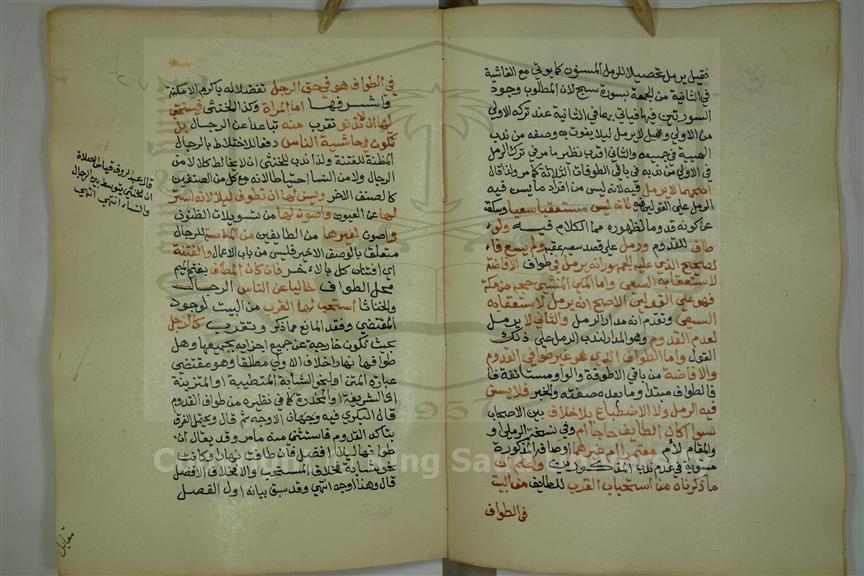 فقيل يرمل تحصيلا للرمل المسنون كما يوتي مع الغاشية
في الثانية من الجمعة بسورة سبح لان المطلوب وجود
السورتين فيها فياتي بها في الثانية عند تركه الاولي
من الاولي وقيل لا يرمل ليلا يفوت به وصفه من ندب
الهيبة في جميعه والثاني اقرب نظير ما مر في ترك الرمل
في الاولي من ندبه في باقي الطوفات الثلاثة كما مر ولذا قال
اصحهما لا يرمل فيه لانه ليس من افراد ما ليس فيه
الرمل علي القولين فيه لانه ليس مستعقبا سعيا وسكة
عن كونه قدوما لظهوره مما الكلام فيه ولو
طاف للقدوم ورمل علي قصد سعيه عقبه ولم يسع فا
لصحيح الذي عليه الجمهور انه يرمل في طواف الافاضة
لاستعقابه السعي واما المكي المنشي حجه من مكة
فهو علي القولين الاصح انه يرمل لاستعقابه
السعي وتقدم انه مدار الرمل والثاني لا يرمل
لعدم القدوم وهو المدار لندب الرمل علي ذلك
القول واما الطواف الذي هو غير طوافي القدوم
والافاضة من باقي الاطوفة والواو مستانفة فا
فالطواف مبتدا وما بعده صفته والخبر فلا يسن
فيه الرمل ولا الاضطباع بلا خلاف بين الاصحاب
سوا كان الطايف حاجا ام وفي نسخة الرملي و
والمقام لأم معتمرا ام غيرهما اوصافه المذكورة
مستوية في عدم ندب المذكورين واعلم ان
ما ذكرناه من استحباب القرب للطايف من البيت
في الطواف
في الطواف هو في حق الرجل تفضلا له باكرم الامكنة
واشرفها اما المراة وكذا الخنثي فيستحق
لها ان لا تدنو تقرب منه تباعدا عن الرجال بل
تكون في حاشية الناس دفعا للاختلاط بالرجال
المظنة للفتنة ولذا ندب للخنثي ان لا يخالط كلا من
الرجال ولا من النسا احتياطا لانه مع كل من الصنفين
كالصنف الاخر وليس لها ان تطوف ليلا لانه استر
لها عن العيون واصون لها من تسويلات الظنون
واصون لغيرها من الطايفين من الملامسة للرجال
متعلق بالوصف الاخير فليس من باب الاعمال والفتنة
اي افتتان كل بالاخر فان كان المطاف بفتح الميم
محل الطواف خاليا عن الناس الرجال
والخناثا استحب لها القرب من البيت لوجود
المقتضي وفقد المانع مما ذكر وتقرب كالرجل
بحيث تكون خارجة عن جميع اجزايه بجميعها وهل
طوافها نهارا خلاف الاولي مطلقا وهو مقتضي
عبارة المتن او لنحو الشابة المتطيبة او المتزينة
او الشريفة او المخدرة كما في نظيره من طواف القدوم
قال البكري فيه وجهان الاوجه ثم قال ويحتمل الفرق
بتاكد القدوم فاستثني منه ما مر وقد يقال ان
طوافها ليلا افضل فان طافت نهارا وكانت
نحو شابة فخلاف المستحب والا فخلاف الافضل
قال وهذا اوجه انتهي وقد سبق بيانه اول الفصل
قال عبد الروف قياس الصلاة
ان الخنثي يتوسط بين الرجال
والنسا انتهي انتهي
مقابل